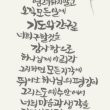 염려하지말고
오직 모든일에
기도와 간구로
너희 구할것을
감사함으로
하나님께 아뢰라
그리하면 모든 지각에
뛰어난 하나님의 평강이
그리스도 예수 안에서
너희 마음과 생각을